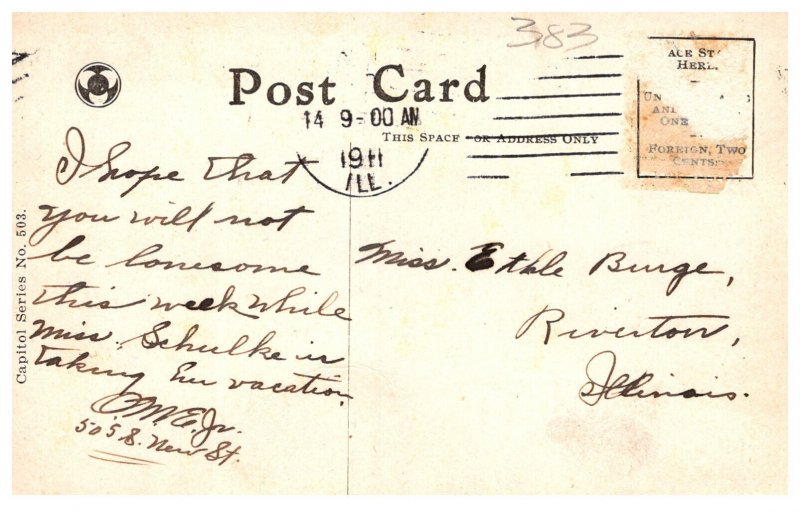 383
Post Card
ACE ST
HERE.
UN
AND
ONE
FOREIGN, TWO
CENTS.
14 9-00 AM
1911
ILL.
THIS SPACE FOR ADDRESS ONLY
Capitol Series No. 503.
I hope that
you will not
be lonesome
this week while
Miss. Schulke is
taking her vacation.
505 S. New St.
Miss. Ethle Burge,
Riverton,
Illinois.